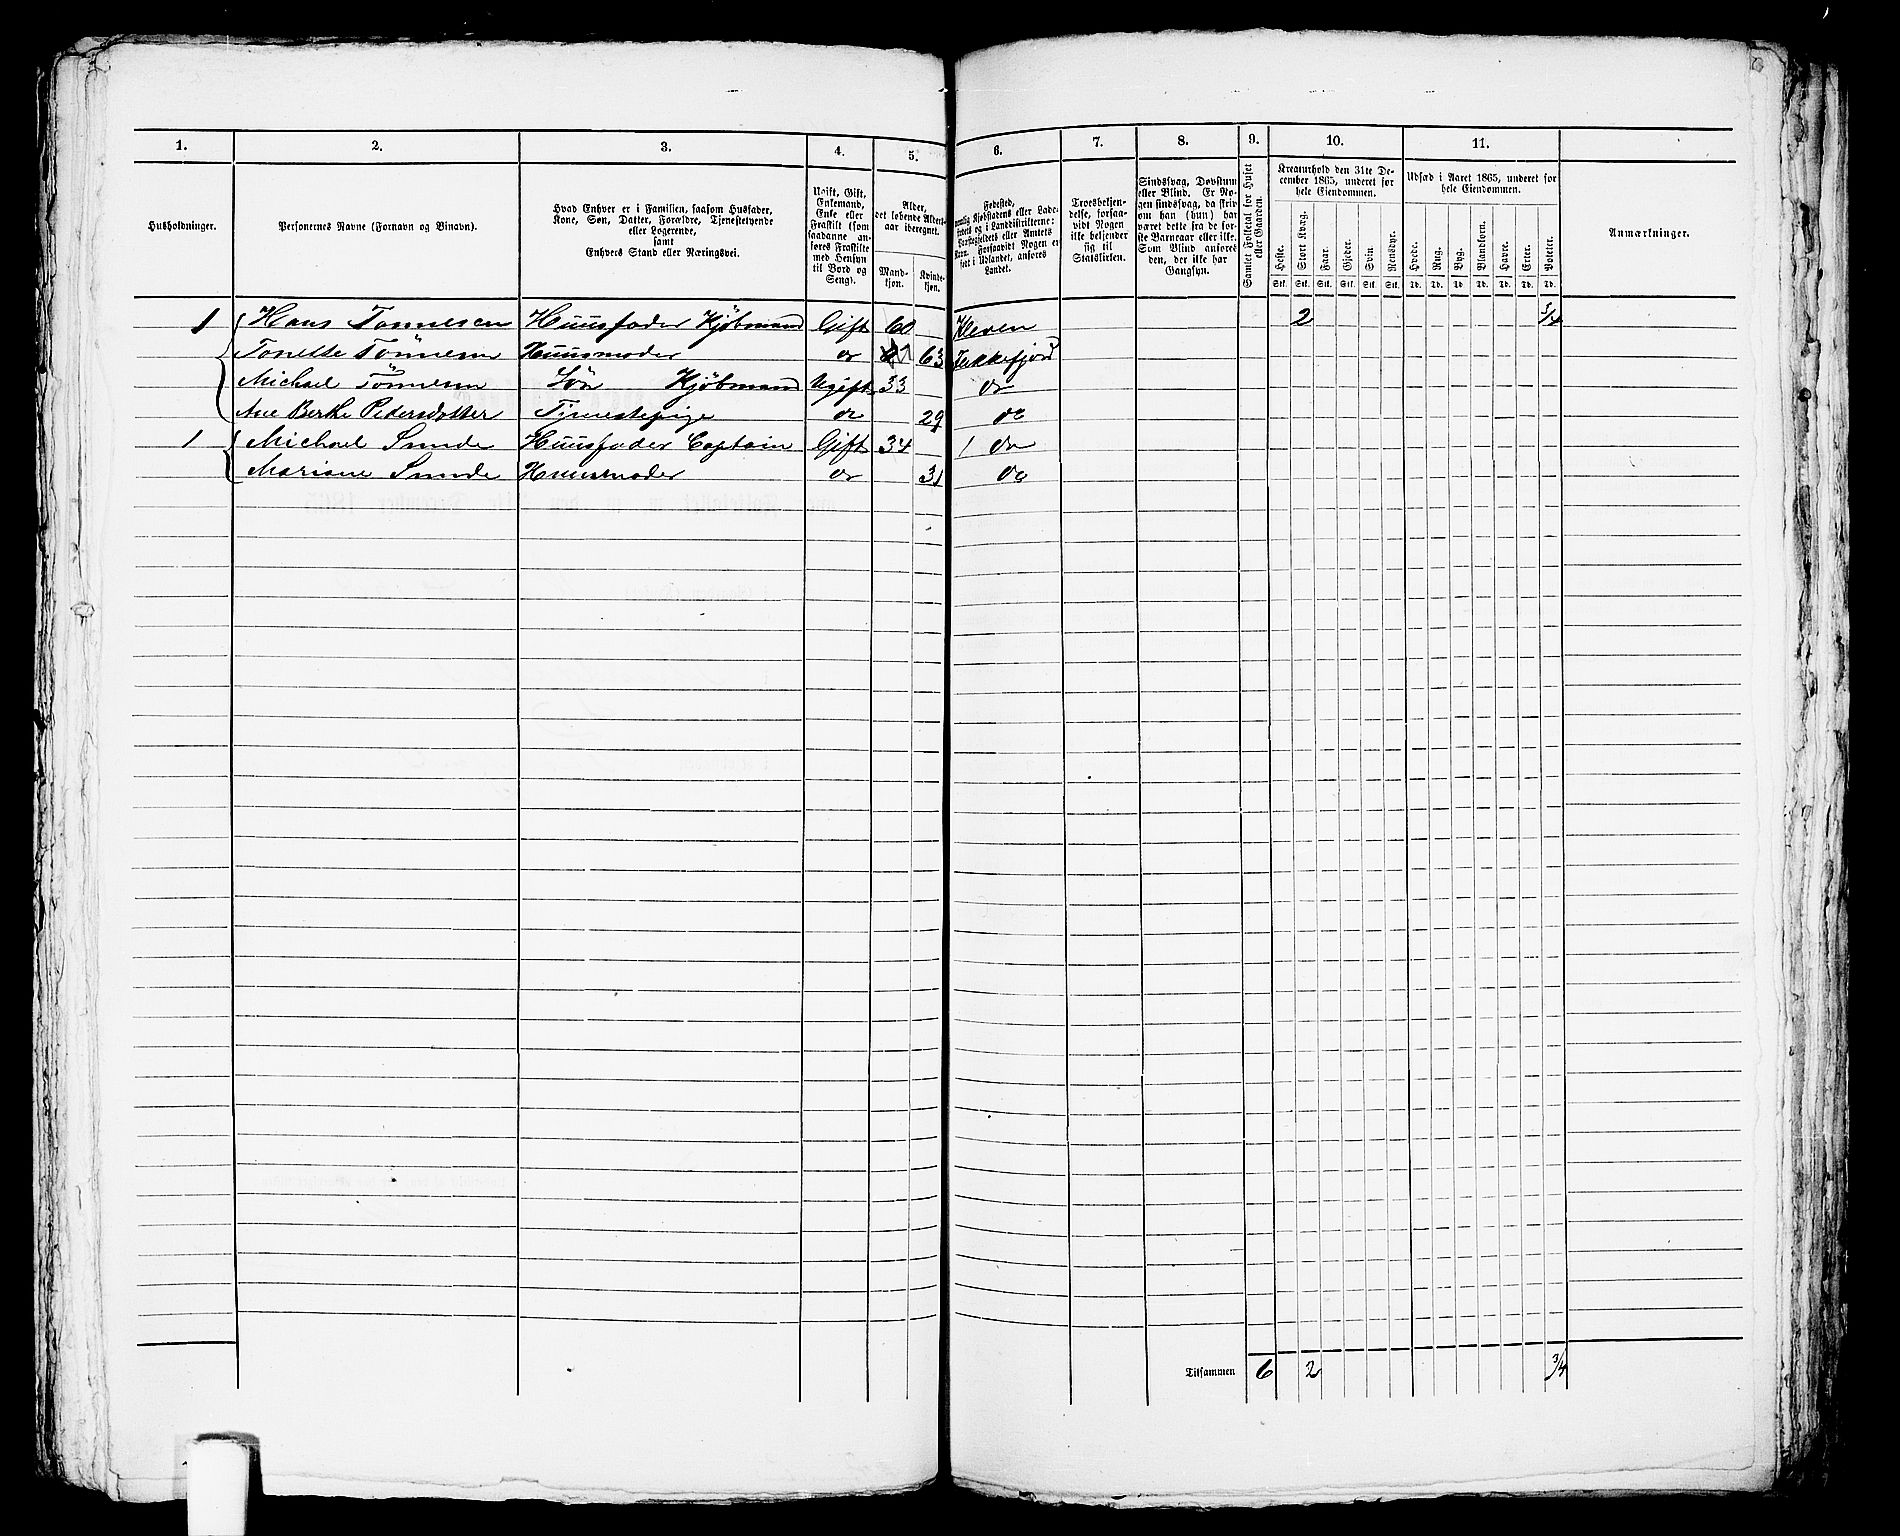 1.
2.
3.
4.
5.
6.
7.
8.
9.
10.
11.
Husholdninger.
Personernes Navne (Fornavn og Binavn).
Hvad Enhver er i Familien, saasom Husfader,
Kone, Søn, Datter, Forældre, Tjenestetyende
eller Logerende,
samt
Enhvers Stand eller Næringsvei.
Ugift, Gift,
Enkemand,
Enke eller
Fraskilt (som
saadanne an-
føres Fraskilte
med Hensyn
til Bord og
Seng).
Alder,
det løbende Alders-
aar iberegnet.
Mand-
kjøn.
Kvinde-
kjøn.
Fødested,
nemlig Kjøbstadens eller Lade-
stedets og i Landdistrikterne:
Præstegjeldets eller Amtets
Navn. Forsaavidt Nogen er
født i Udlandet, anføres
Landet.
Troesbekjen-
delse, forsaa-
vidt Nogen
ikke bekjender
sig til
Statskirken.
Sindssvag, Døvstum
eller Blind. Er No-
gen sindssvag, da skriv
om han (hun) har
været dette fra de før-
ste Barneaar eller ikke.
Som Blind anføres
den, der ikke har
Gangsyn.
Samlet Folketal for Huset
eller Gaarden.
Kreaturhold den 31te De-
cember 1865, underet for
hele Eiendommen.
Heste.
Stort Kvæg.
Faar.
Gjeder.
Svin
Rensdyr.
Stk. Stk. Stk. Stk. Stk. Stk.
Udsæd i Aaret 1865, underet for
hele Eiendommen.
Hvede.
Rug.
Byg.
Blandkorn.
Havre.
Erter.
Poteter.
Td. Td. Td. Td. Td. Td. Td.
Anmærkninger.
1 Hans Tønnesen Huusfader Kjøbmand Gift 60 Kleven 2 3/4
Tonette Tønnesen Huusmoder do 63 Fækkefjord
Michael Tønnesen Søn Kjøbmand Ugift 33 do
Ane Berthe Pedersdatter Tjenestepige do 29 do
1 Michael Sunde Huusfader Captain Gift 34 1 do
Mariane Sunde Huusmoder do 31 do
Tilsammen 6 2 3/4